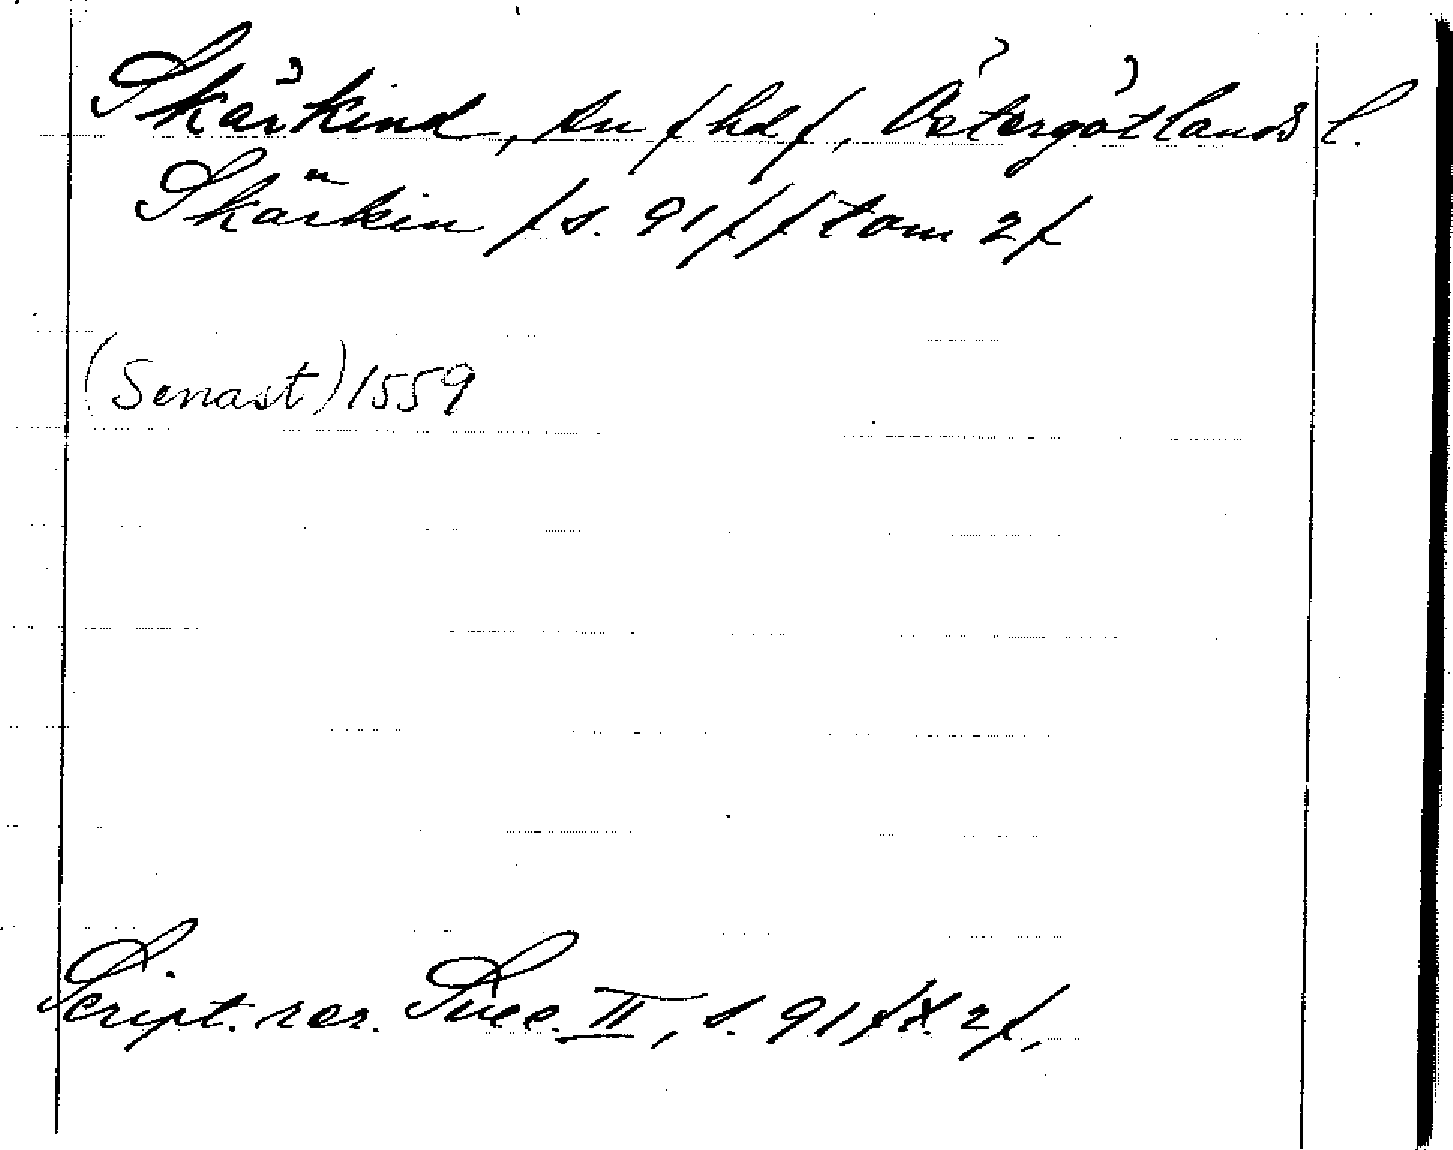 Skärkind, sn /hd/, Östergötlands l.
Skärkin /s. 91/ /tom 2/
(Senast) 1559
Script. rer. Suec. II, s. 91 /X. 2/,